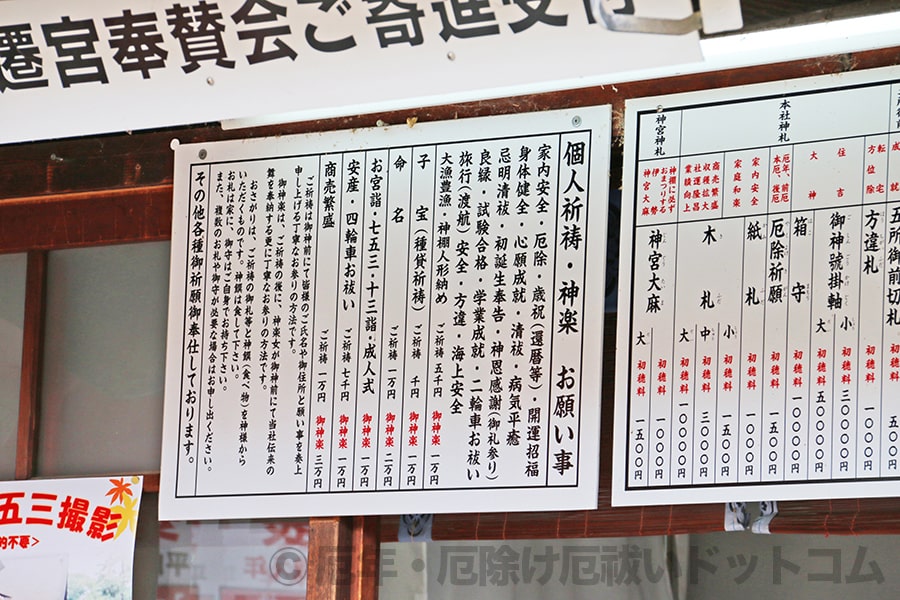 遷宮奉賛会ご寄進受付
個人祈祷・神楽 お願い事
家内安全・厄除・歳祝(還暦等)・開運招福
身体健全・心願成就・清祓・病気平癒
忌明清祓・初誕生奉告・神恩感謝(御礼参り)
良縁・試験合格・学業成就・二輪車お祓い
旅行(渡航)安全・方違・海上安全
大漁豊漁・神棚人形納め
ご祈祷 五千円 御神楽 一万円
子宝(種貸祈祷)
ご祈祷 千円 御神楽 一万円
命名
ご祈祷 一万円 御神楽 二万円
お宮詣・七五三・十三詣・成人式
ご祈祷 一万円 御神楽 一万円
安産・四輪車お祓い
ご祈祷 七千円 御神楽 一万円
商売繁盛
ご祈祷 一万円 御神楽 三万円
ご祈祷は御神前にて皆様のご氏名や御住所と願い事を奏上
申し上げる丁寧なお参りの方法です。
御神楽は、ご祈祷の後に、神楽女が御神前にて当社伝来の
舞を奉納する更に丁寧なお参りの方法です。
おさがりは、ご祈祷の御札等と神饌(食べ物)を神様から
いただくものです。神饌は食して下さい。
お札は家に、御守はご自身でお持ち下さい。
また、複数のお札や御守が必要な場合はお申し出ください。
その他各種御祈願御奉仕しております。
成就
五所御前切札
初穂料 五〇〇円
転宅
方位除
方違札
初穂料 一〇〇〇円
本社神札
住吉
大神
御神號掛軸
小 初穂料 三〇〇〇円
大 初穂料 五〇〇〇円
箱守
初穂料 一〇〇〇円
厄年、前厄
本厄、後厄
厄除祈願
初穂料 一五〇〇円
家内安全
家庭和楽
紙札
初穂料 一〇〇〇円
商売繁盛
収穫拡大
社運隆昌
業績向上
木札
小 初穂料 一五〇〇円
中 初穂料 三〇〇〇円
大 初穂料 一〇〇〇〇円
神宮神札
神棚に必ず
おまつりする
伊勢
神宮大麻
神宮大麻
初穂料 一〇〇〇円
大 初穂料 一五〇〇円
五三撮影
的不要>
© 厄年・厄除け厄祓いドットコム